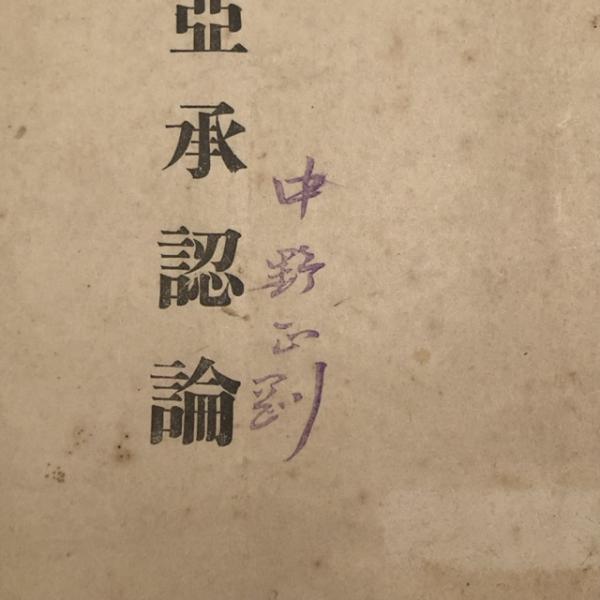 中野正剛
亞承認論